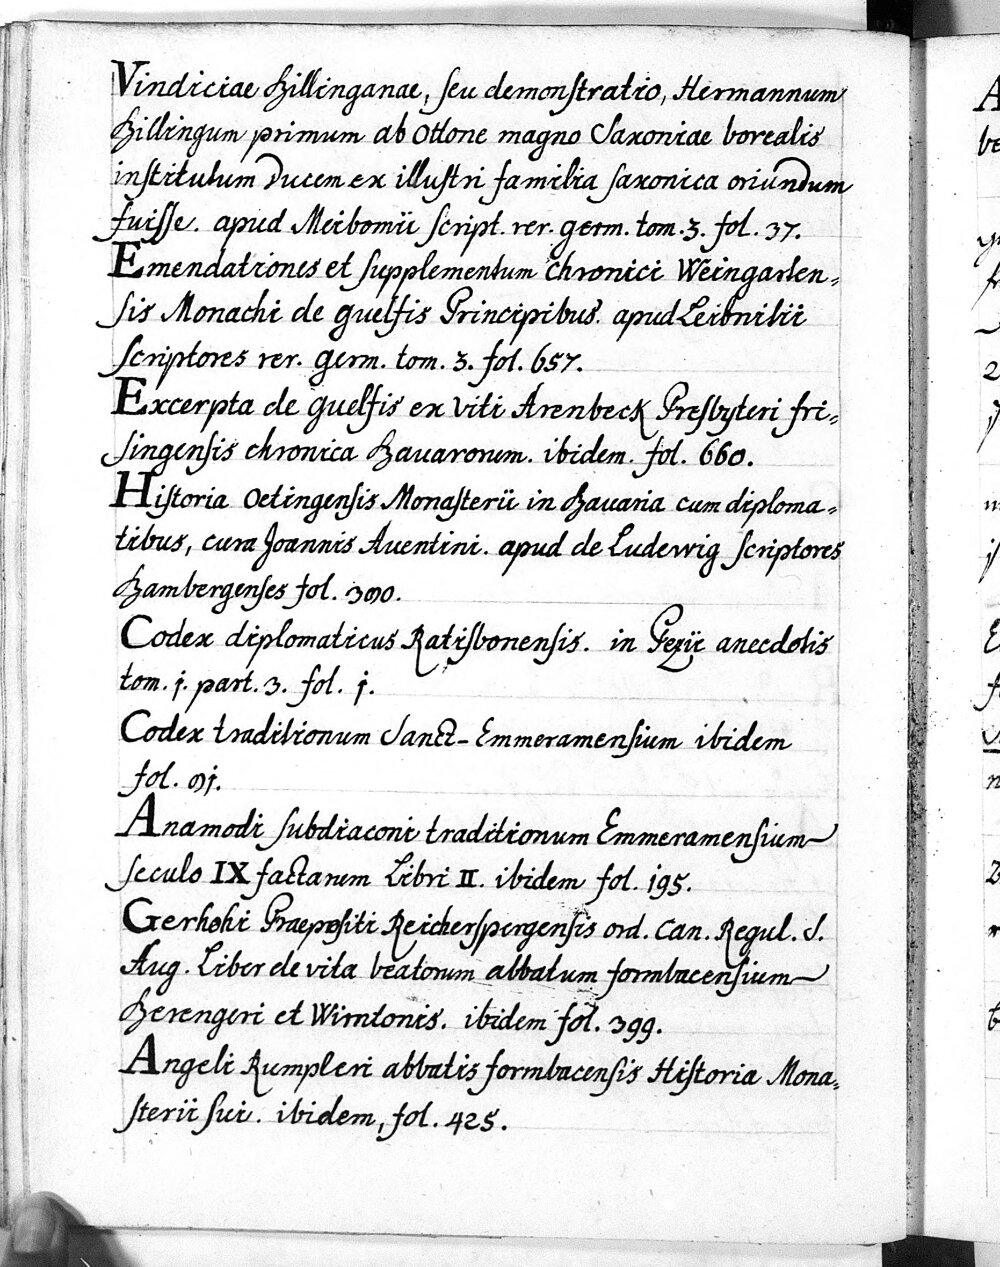 Vindiciae Billinganae, seu demonstratio, Hermannum
Billingum primum ab Ottone magno Saxoniae borealis
institutum Ducem ex illustri familia saxonica oriundum
fuisse. apud Meibomii script. rer. germ. tom. 3. fol. 37.
Emendationes et supplementum chronici Weingarten-
sis Monachi de guelfis Principibus. apud Leibnitii
scriptores rer. germ. tom. 3. fol. 657.
Excerpta de guelfis ex Viti Arenbeck Presbyteri fri-
singensis chronica Bavarorum. ibidem. fol. 660.
Historia Oetingensis Monasterii in Bavaria cum diploma-
tibus, cura Joannis Aventini. apud de Ludewig scriptores
Bambergenses fol.
Codex diplomaticus Ratisbonensis. in Pezii anecdotis
tom. 1. part. 3. fol. 1.
Codex traditionum Sanct-Emmeramensium ibidem
fol.
Anamodi subdiaconi traditionum Emmeramensium
seculo IX factarum Libri II. ibidem fol. 195.
Gerhohi Praepositi Reicherspergensis ord. Can. Regul. S.
Aug. Liber de vita beatorum abbatum formbacensium
Berengeri et Wirntonis. ibidem fol. 399.
Angeli Rumpleri abbatis formbacensis Historia Mona-
sterii sui. ibidem, fol. 425.